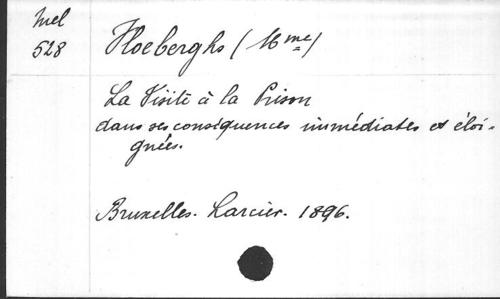 Mel
528
Hoeberghs (Mme)
La Visite à la Prison
dans ses conséquences immédiates et éloi-
gnées.
Bruxelles. Larcier. 1896.